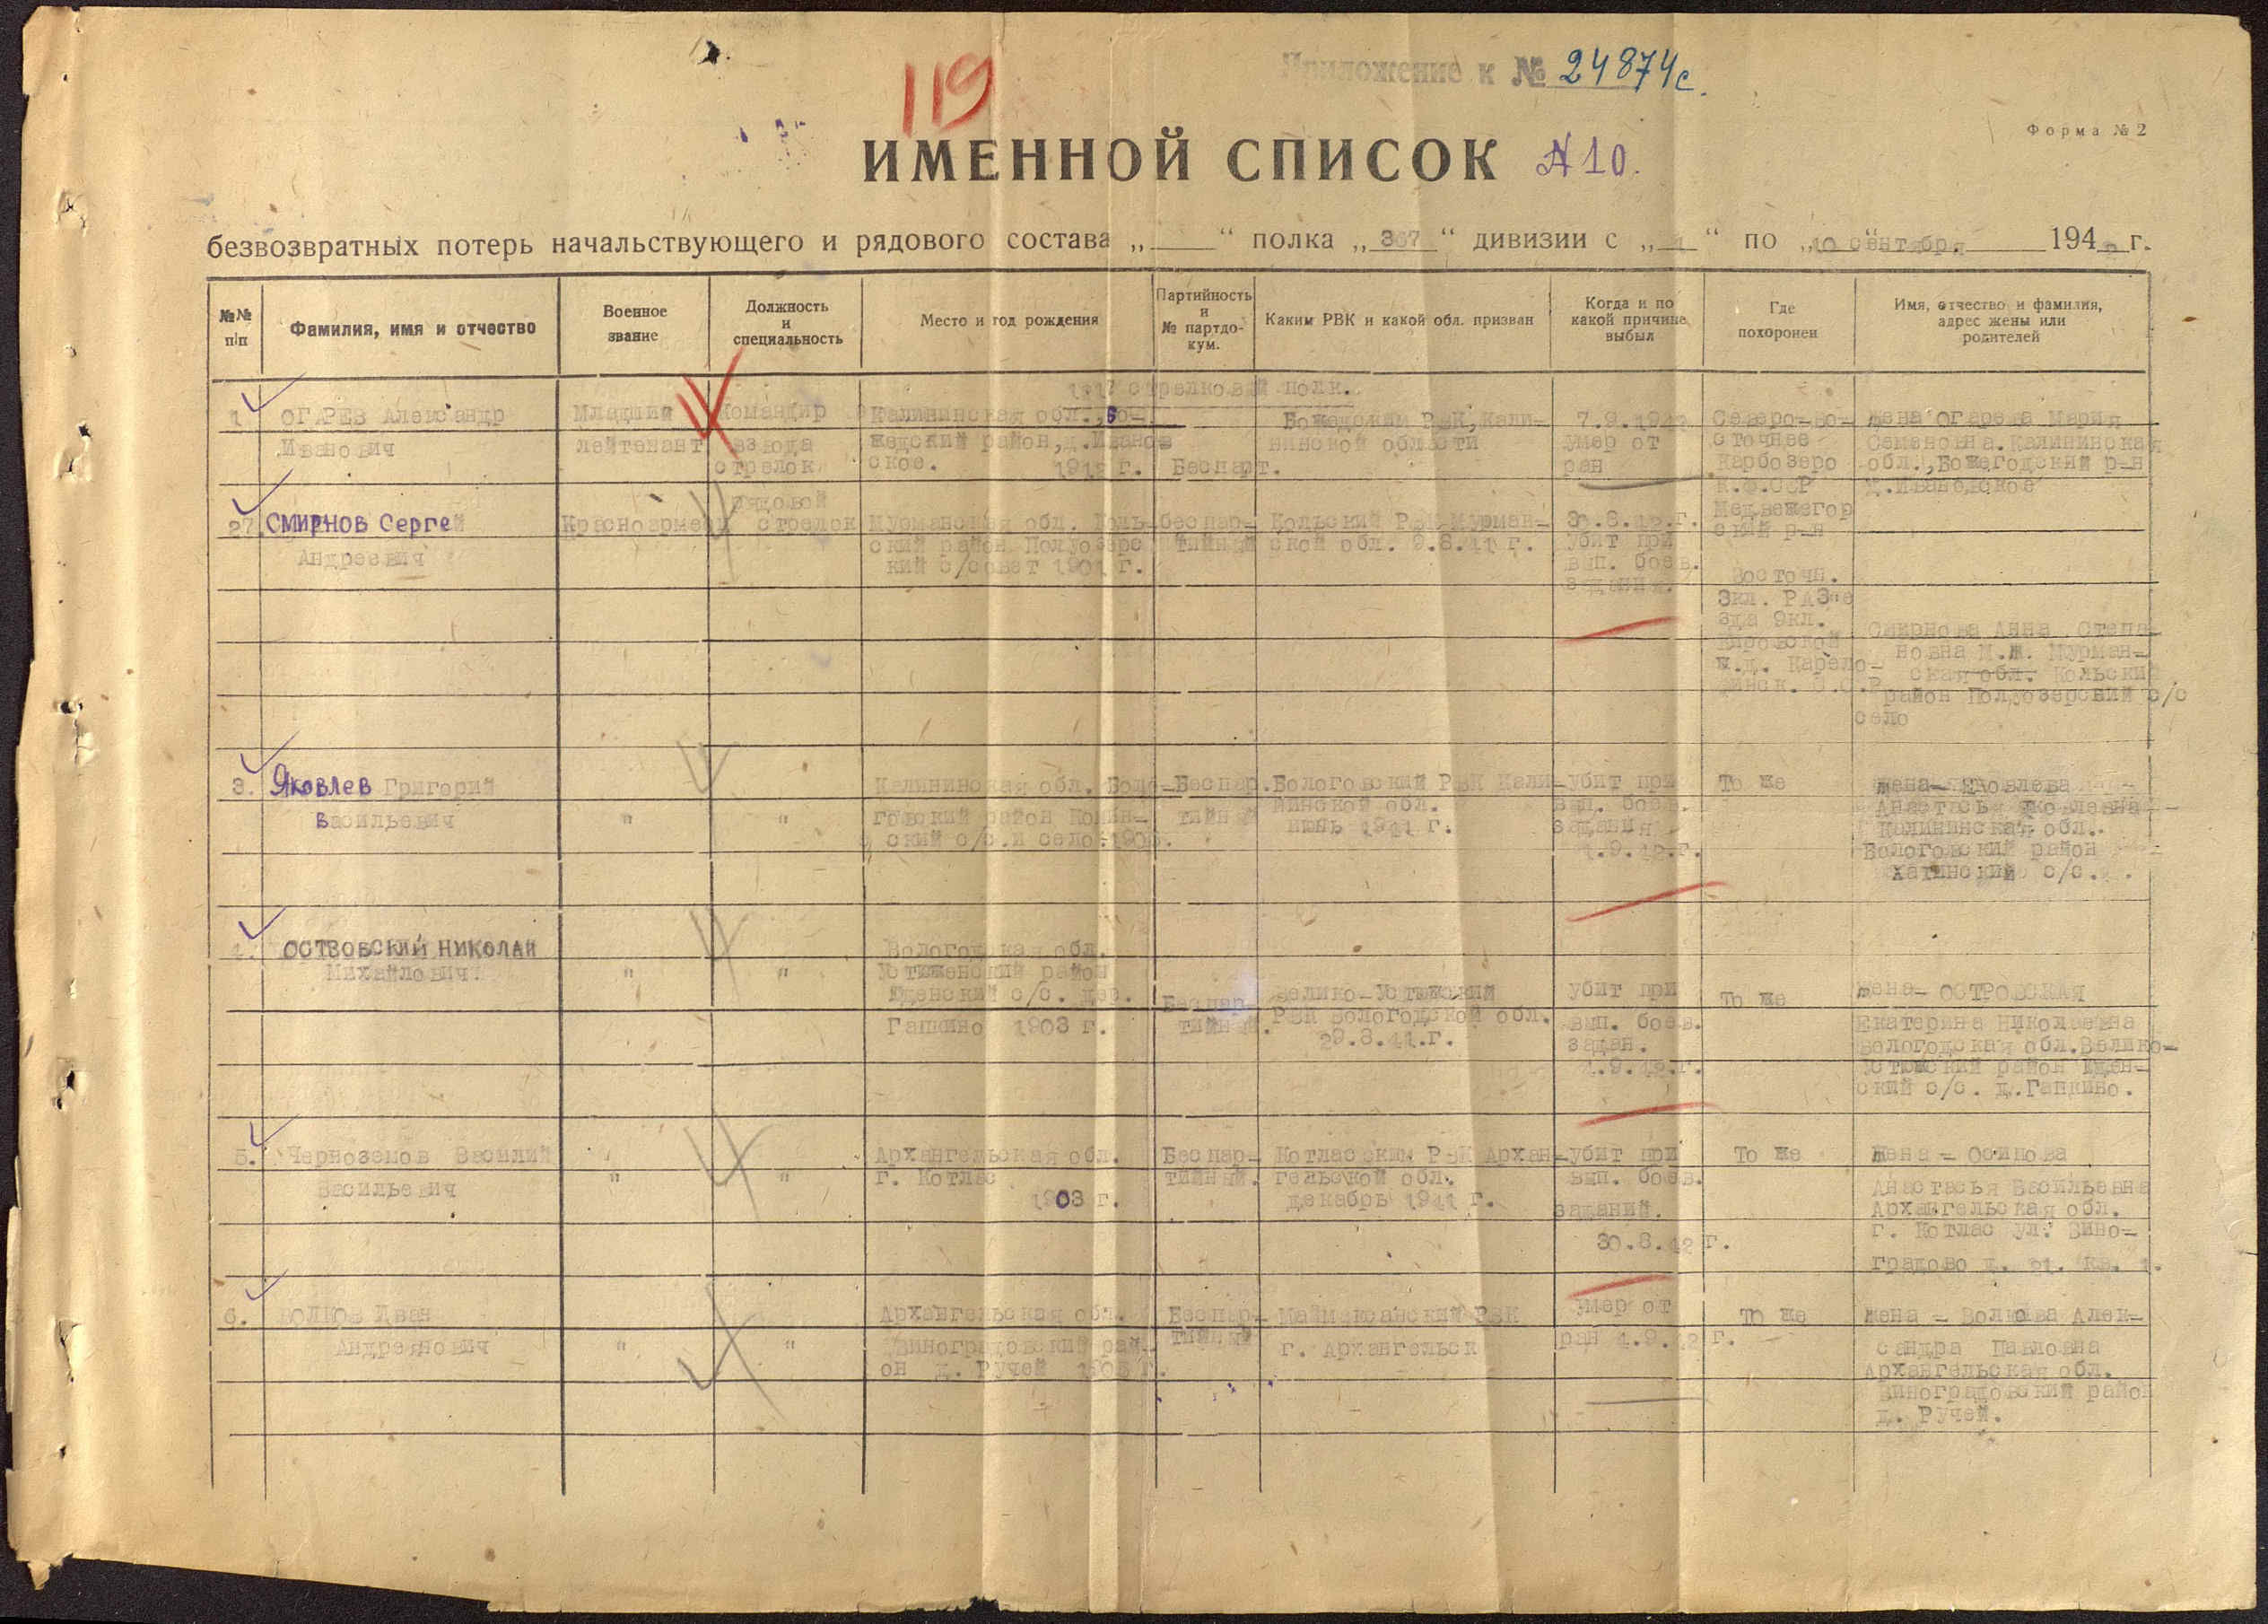 119
Приложение к № 24874с.
Форма № 2
ИМЕННОЙ СПИСОК №10.
безвозвратных потерь начальствующего и рядового состава „ “ полка „367“ дивизии с „1“ по „10 сентября 1942 г.
№№ п/п
Фамилия, имя и отчество
Военное звание
Должность и специальность
Место и год рождения
Партийность и № партдокум.
Каким РВК и какой обл. призван
Когда и по какой причине выбыл
Где похоронен
Имя, отчество и фамилия, адрес жены или родителей
стрелковый полк.
1
ОГАРЕВ Александр
Иванович
Младший
лейтенант
Командир
взвода
стрелок
Калининская обл., Бо-
жедский район, д. Иванов
ское. г.
Беспарт.
Божедским РВК, Кали-
нинской области
7.9.1942
умер от
ран
Северо-во-
сточнее
Карбозеро
К.Ф.ССР
Медвежегор
ский р-н
жена Огарева Мария
Семеновна. Калининская
обл., Божегодский р-н
д.Ивановское
2.
СМИРНОВ Сергей
Андреевич
Красноармеец
рядовой
стрелок
Мурманская обл. Коль-
ский район Полуозерс
кий с/совет 1901 г.
беспар-
тийный
Кольский РВК Мурман-
ской обл. 9.8.41 г.
30.8.42.г.
убит при
вып. боев.
задания.
Восточн.
3кл. РАЗ"е
зда 9кл.
Кировской
ж.д. Карело-
финск. С.С.Р
Смирнова Анна Степа-
новна М.Ж. Мурман-
ская обл. Кольский
район Полуозерский с/с
село
3.
Яковлев Григорий
Васильевич
"
"
Калининская обл. Боло-
говский район
ский с/с. и село
Беспар.
тийный
Бологовский РВК Кали-
нинской обл.
июнь 1941 г.
убит при
вып. боев.
задания
1.9.42.г.
То же
жена- Яковлева
Анастасья Яковлевна
Калининская обл.
Бологовский район
Хатинский с/с.
4.
ОСТВОВСКИЙ НИКОЛАЙ
Михайлович.
"
"
Вологодская обл.
Устюженский район
Юденский с/с. дер.
Гашкино 1903 г.
Беспар-
тийный.
Велико-Устюжский
РВК Вологодской обл.
29.8.41.г.
убит при
вып. боев.
задан.
1.9.42.г.
То же
жена- ОСТРОВСКАЯ
Екатерина Николаевна
Вологодская обл.Велико-
Устюжский район Юден-
ский с/с. д.Гашкино.
5.
Черноземов Василий
Васильевич
"
"
Архангельская обл.
г. Котлас
1903 г.
Беспар-
тийный.
Котласским РВК Архан-
гельской обл.
декабрь 1941 г.
убит при
вып. боев.
заданий.
30.8.42 г.
То же
жена - Осипова
Анастасья Васильевна
Архангельская обл.
г. Котлас ул. Вино-
градово д. 21. кв. 1.
6.
ВОЛКОВ Иван
Андреянович
"
"
Архангельская обл.
Виноградовский рай-
он д. Ручей 1905 г.
Беспар-
тийный
Маймаксанский РВК
г. Архангельск
Умер от
ран 1.9.42 г.
То же
жена - Волкова Алек-
сандра Павловна
Архангельская обл.
Виноградовский район
д. Ручей.